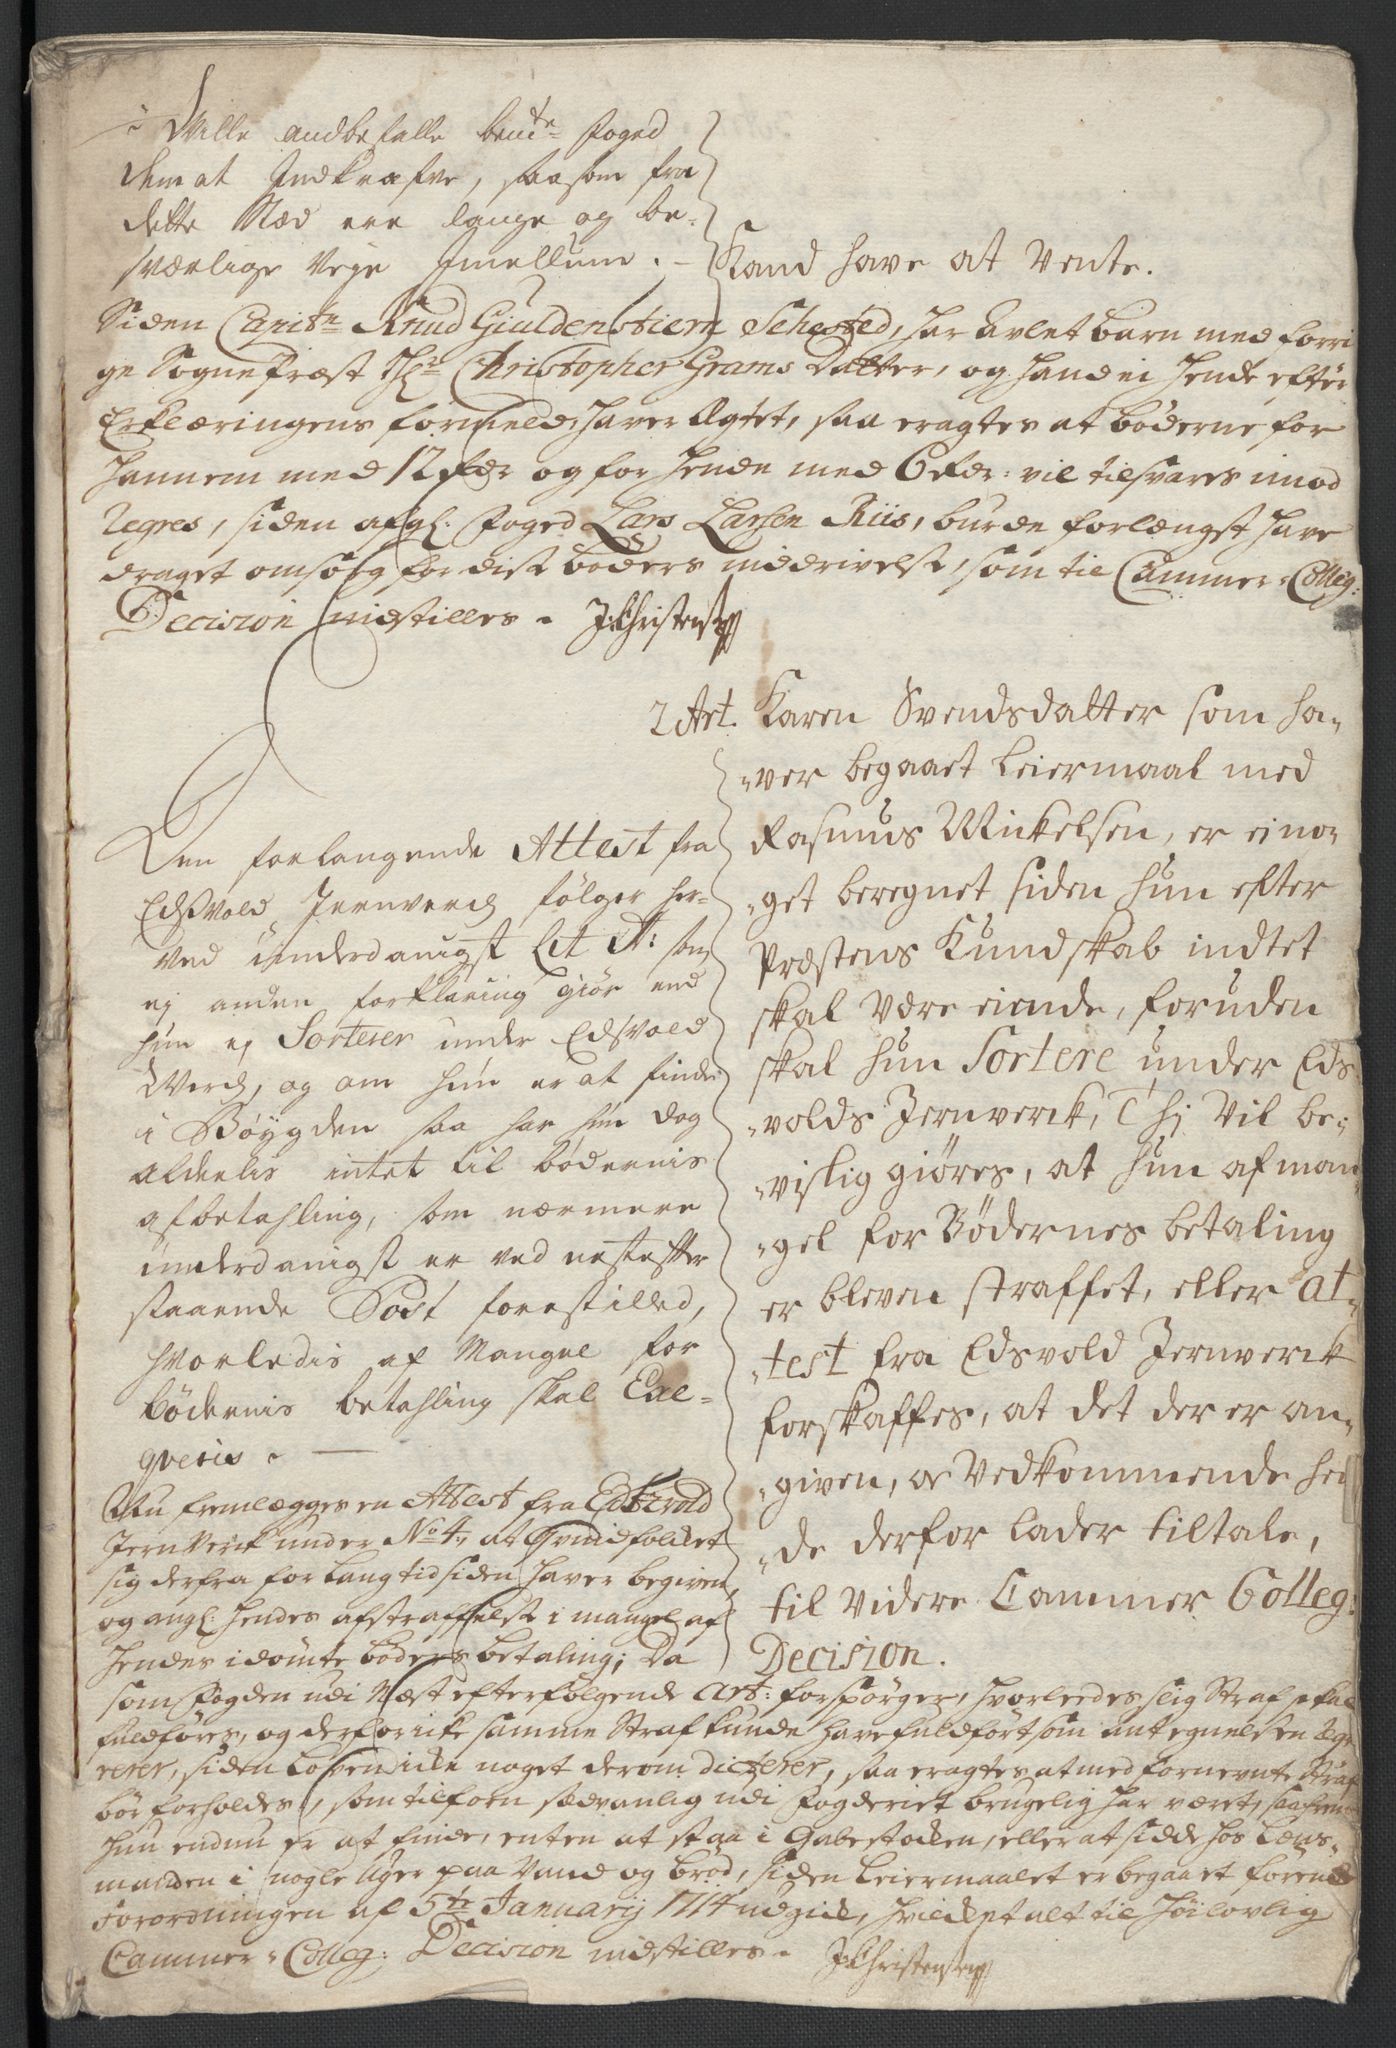 Wille andbefalle bemte Foged
dem at Indkræfve, saasom fra
dette Stæd ere lange og be-
sværlige Veye Imellum. -
Kand have at Vente.
Siden Capitn Knud Giuldenstiern Sehested, har Avlet barn med forri
ge Sognepræst Hr Christopher Grams Datter, og hand ei hende efter
Erklæringens formeld, haver Ægtet, saa eragtes at bøderne for
hannem med 12 og for hende med 6 : vil tilsvares imod
Regres, siden afgl. Foged Lars Larsen Riis, burde forlængst have
draget omsorg for disse bøders inddrivelse, som til Cammer-Colleg:
Decision indstilles. J: Christensen
2 Art. Karen Svendsdatter som ha-
-ver begaaet Leiermaal med
Rasmus Mickelsen, er ei no-
-get beregnet siden hun efter
Præstens Kundskab indtet
skal være eiende, foruden
skal hun Sortere under Eds
-volds Jernverck, Thj Vil be-
-vislig giøres, at hun af man
-gel for Bødernes betaling
er bleven straffet, eller at-
-test fra Edsvold Jernverck
forskaffes, at det der er an-
-given, oc Vedkommende hen
-de derfor lader tiltale,
til Videre Cammer Colleg:
Decision.
Den forlangende Attest fra
Edsvold Jernverck følger her-
ved underdanigst Lit A: som
ej anden forklaring giør end
hun ej Sorterer under Edsvold
Werck, og om hun er at finde
i Bøygden saa har hun dog
aldelis intet til bødernis
afbetahling, som nærmere
underdanigst er ved nestefter
staaende Post forestilled,
hvorledis af Mangel for
bødernis betahling skal Exe-
qveris. -
Nu fremlægges en Attest fra Edsvold
JernVerk under No 4, at Qvindfolcket
sig derfra for Lang tid siden haver begiven,
og angl: hendes afstraffelse i mangel af
hendes idømte bøders betaling; Da
som Fogden udi Næst efterfølgende Art: forspørger, hvorledes slig Straf skal
fuldføres, og derfor icke samme Straf kunde have fuldført som antegnelsen
siden Loven icke noget derom dicterer, saa eragtes at med fornevnte Straf
bør forholdes, som tilforn sædvanlig udi Fogderiet brugelig har været, saafremt
hun endnu er at finde, enten at staa i Gabestocken, eller at sidde hos Læns-
manden i nogle Uger paa Vand og brød, siden Leiermaalet er begaaet førend
Forordningen af 5te Januarij 1714 udgick, hvilcket alt til Høilovlig
Cammer-Colleg: Decision indstilles. J: Christensen